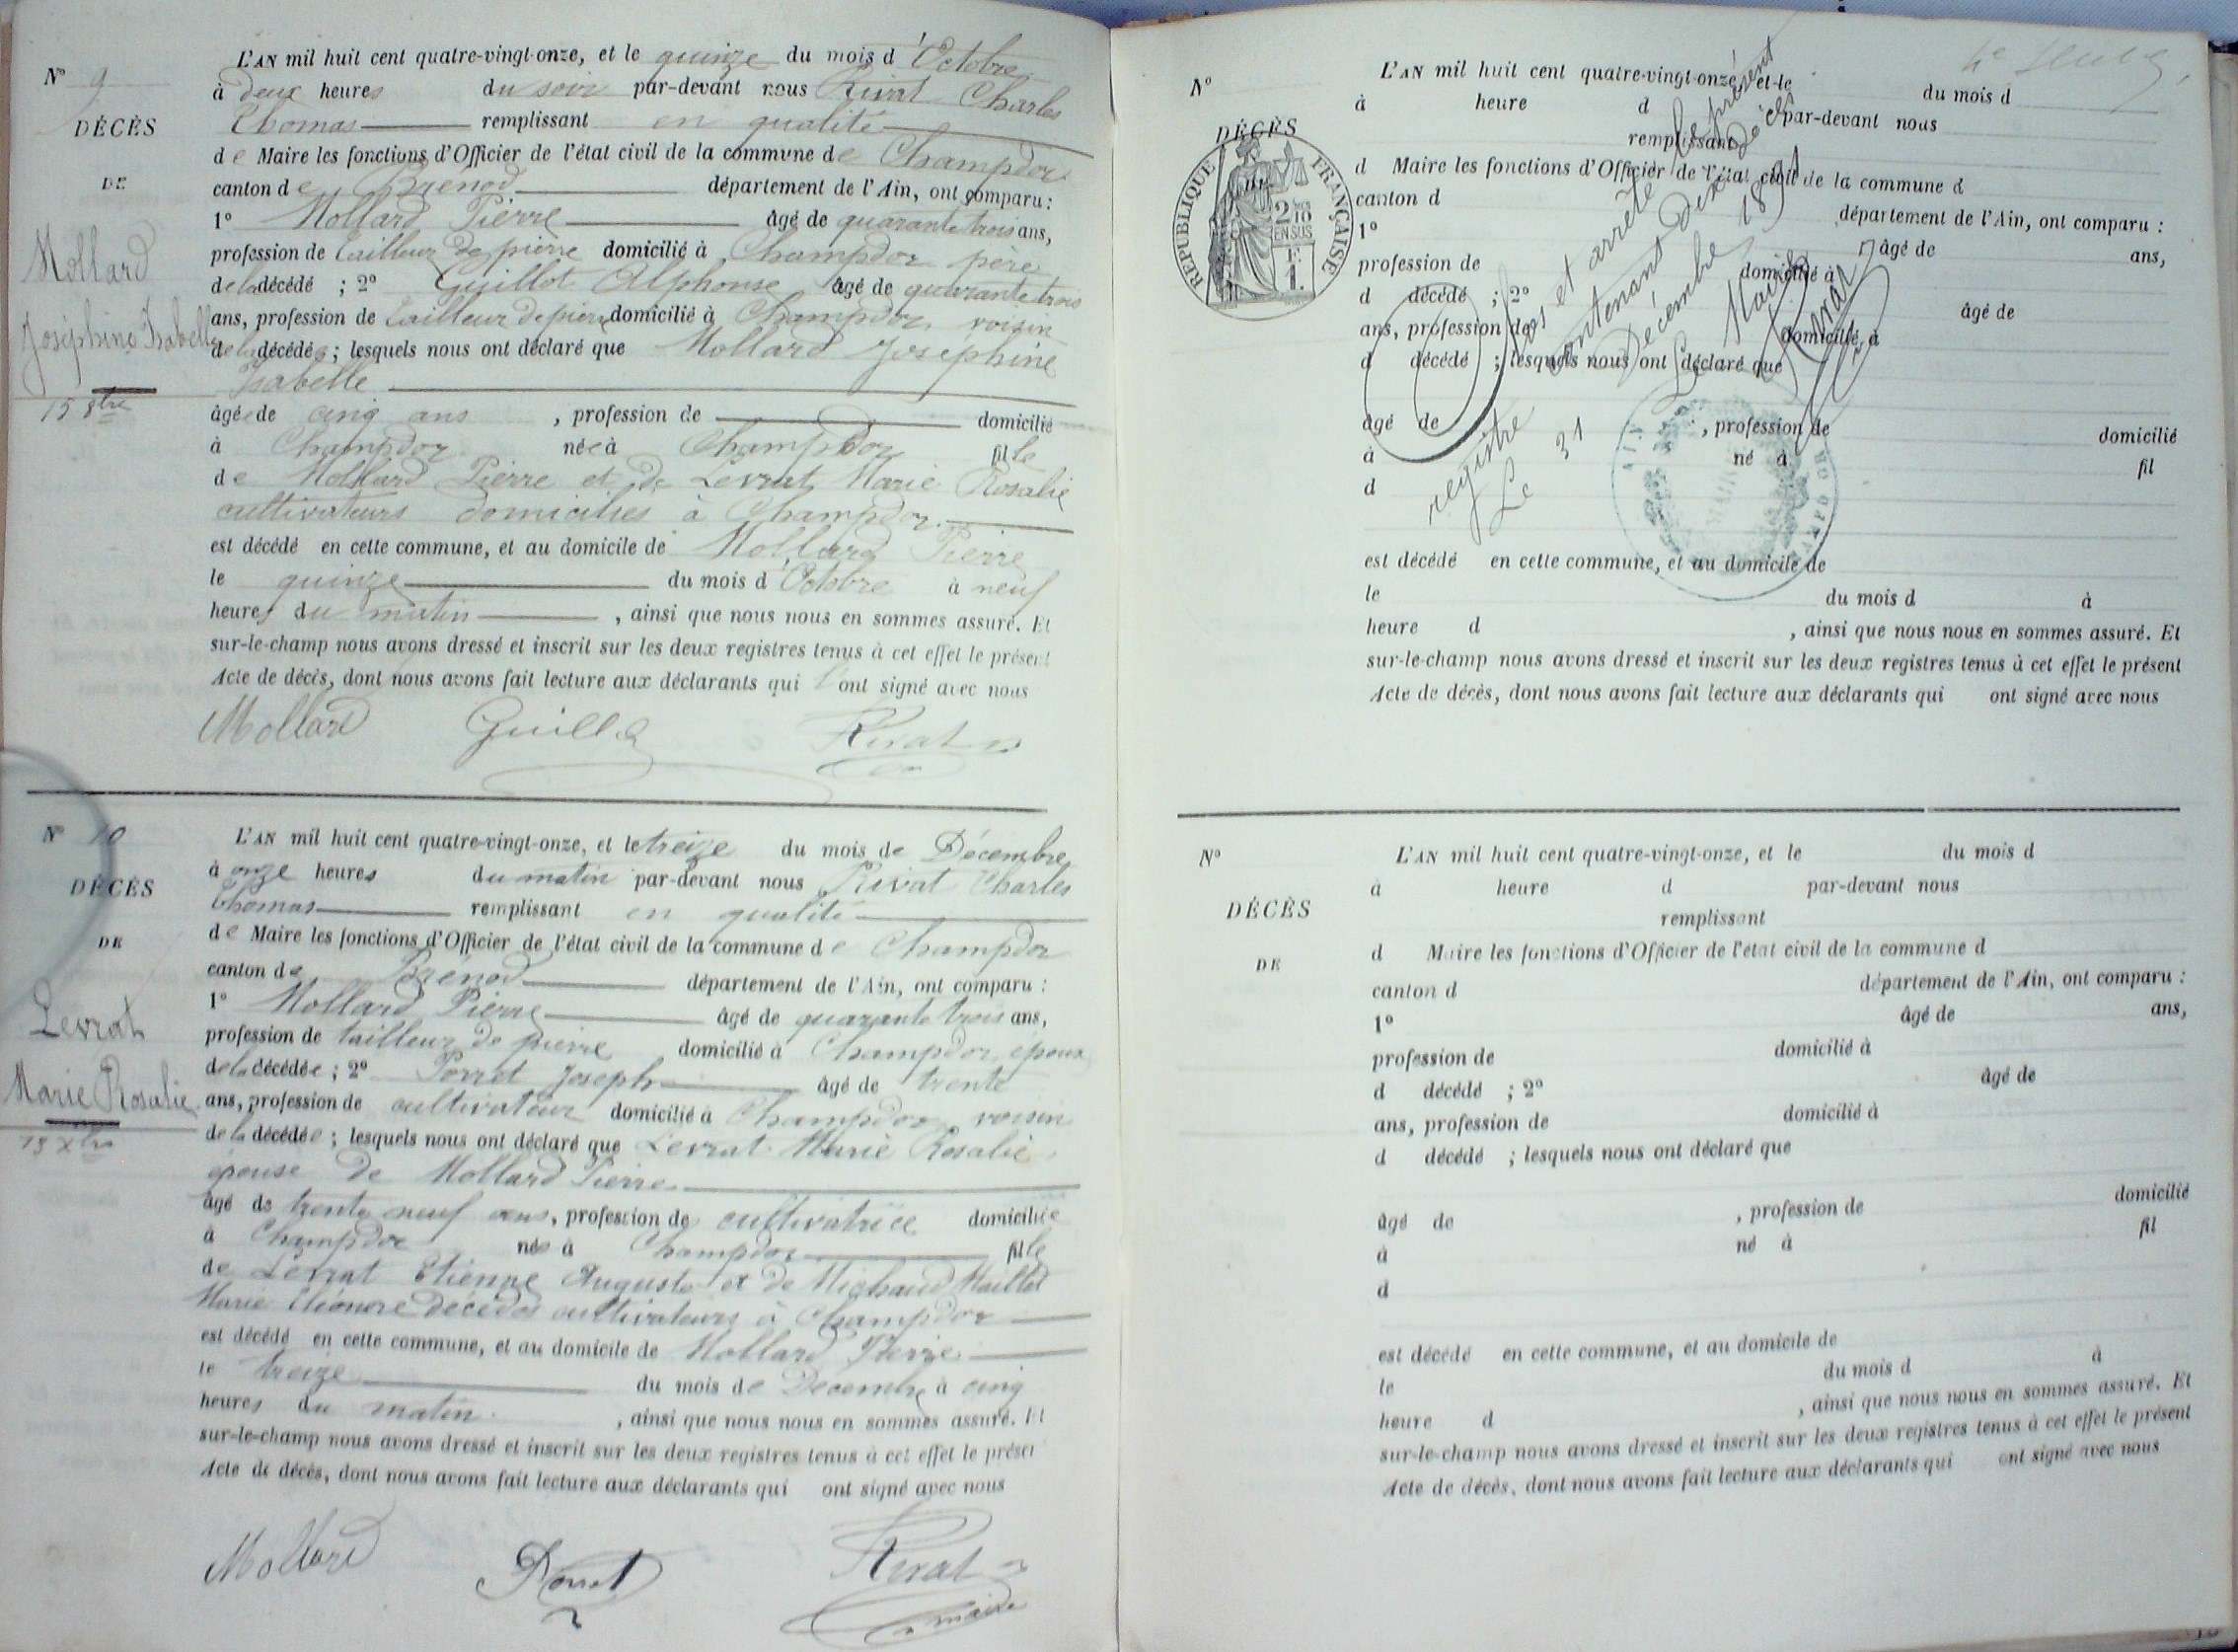 N° 9
DÉCÈS
DE
Mollard
Joséphine Isabelle
15 8bre
L'AN mil huit cent quatre-vingt-onze, et le quinze du mois d'Octobre
à deux heures du soir par-devant nous Rivat Charles
Thomas remplissant en qualité
de Maire les fonctions d'Officier de l'état civil de la commune de Champdor
canton de Brénod département de l'Ain, ont comparu :
1° Mollard Pierre âgé de quarante trois ans,
profession de tailleur de pierre domicilié à Champdor père
de la décédé ; 2° Guillot Alphonse âgé de quarante trois
ans, profession de tailleur de pierre domicilié à Champdor voisin
de la décédée ; lesquels nous ont déclaré que Mollard Joséphine
Isabelle
âgée de cinq ans , profession de domicilié
à Champdor née à Champdor fille
de Mollard Pierre et de Levrat Marie Rosalie
cultivateurs domiciliés à Champdor
est décédé en cette commune, et au domicile de Mollard Pierre
le quinze du mois d'Octobre à neuf
heures du matin , ainsi que nous nous en sommes assuré. Et
sur-le-champ nous avons dressé et inscrit sur les deux registres tenus à cet effet le présent
Acte de décès, dont nous avons fait lecture aux déclarants qui ont signé avec nous
Mollard Guillot Rivat
N° 10
DÉCÈS
DE
Levrat
Marie Rosalie
13 Xbre
L'AN mil huit cent quatre-vingt-onze, et le treize du mois de Décembre
à onze heures du matin par-devant nous Rivat Charles
Thomas remplissant en qualité
de Maire les fonctions d'Officier de l'état civil de la commune de Champdor
canton de Brénod département de l'Ain, ont comparu :
1° Mollard Pierre âgé de quarante trois ans,
profession de tailleur de pierre domicilié à Champdor époux
de la décédée ; 2° Porret Joseph âgé de trente
ans, profession de cultivateur domicilié à Champdor voisin
de la décédée ; lesquels nous ont déclaré que Levrat Marie Rosalie
épouse de Mollard Pierre
âgé de trente neuf ans, profession de cultivatrice domiciliée
à Champdor née à Champdor fille
de Levrat Etienne Auguste et de Michaud Maillet
Marie Eléonore décédés cultivateurs à Champdor
est décédé en cette commune, et au domicile de Mollard Pierre
le treize du mois de Décembre à cinq
heures du matin , ainsi que nous nous en sommes assuré. Et
sur-le-champ nous avons dressé et inscrit sur les deux registres tenus à cet effet le présen
Acte de décès, dont nous avons fait lecture aux déclarants qui ont signé avec nous
Mollard Porret Rivat
maire
N°
DÉCÈS
RÉPUBLIQUE FRANÇAISE
2/10 EN SUS
1 F.
L'AN mil huit cent quatre-vingt-onze, et le du mois d
à heure d par-devant nous
remplissant
d Maire les fonctions d'Officier de l'état civil de la commune d
canton d département de l'Ain, ont comparu :
1° âgé de ans,
profession de domicilié à
d décédé ; 2° âgé de
ans, profession de domicilié à
d décédé ; lesquels nous ont déclaré que
âgé de , profession de domicilié
à né à fil
d
est décédé en cette commune, et au domicile de
le du mois d à
heure d , ainsi que nous nous en sommes assuré. Et
sur-le-champ nous avons dressé et inscrit sur les deux registres tenus à cet effet le présent
Acte de décès, dont nous avons fait lecture aux déclarants qui ont signé avec nous
Clos et arrêté le présent
registre contenant dix décès
Le 31 Décembre 1891
Le Maire
Rivat
AIN
MAIRIE DE CHAMPDOR
N°
DÉCÈS
DE
L'AN mil huit cent quatre-vingt-onze, et le du mois d
à heure d par-devant nous
remplissant
d Maire les fonctions d'Officier de l'état civil de la commune d
canton d département de l'Ain, ont comparu :
1° âgé de ans,
profession de domicilié à
d décédé ; 2° âgé de
ans, profession de domicilié à
d décédé ; lesquels nous ont déclaré que
âgé de , profession de domicilié
à né à fil
d
est décédé en cette commune, et au domicile de
le du mois d à
heure d , ainsi que nous nous en sommes assuré. Et
sur-le-champ nous avons dressé et inscrit sur les deux registres tenus à cet effet le présent
Acte de décès, dont nous avons fait lecture aux déclarants qui ont signé avec nous